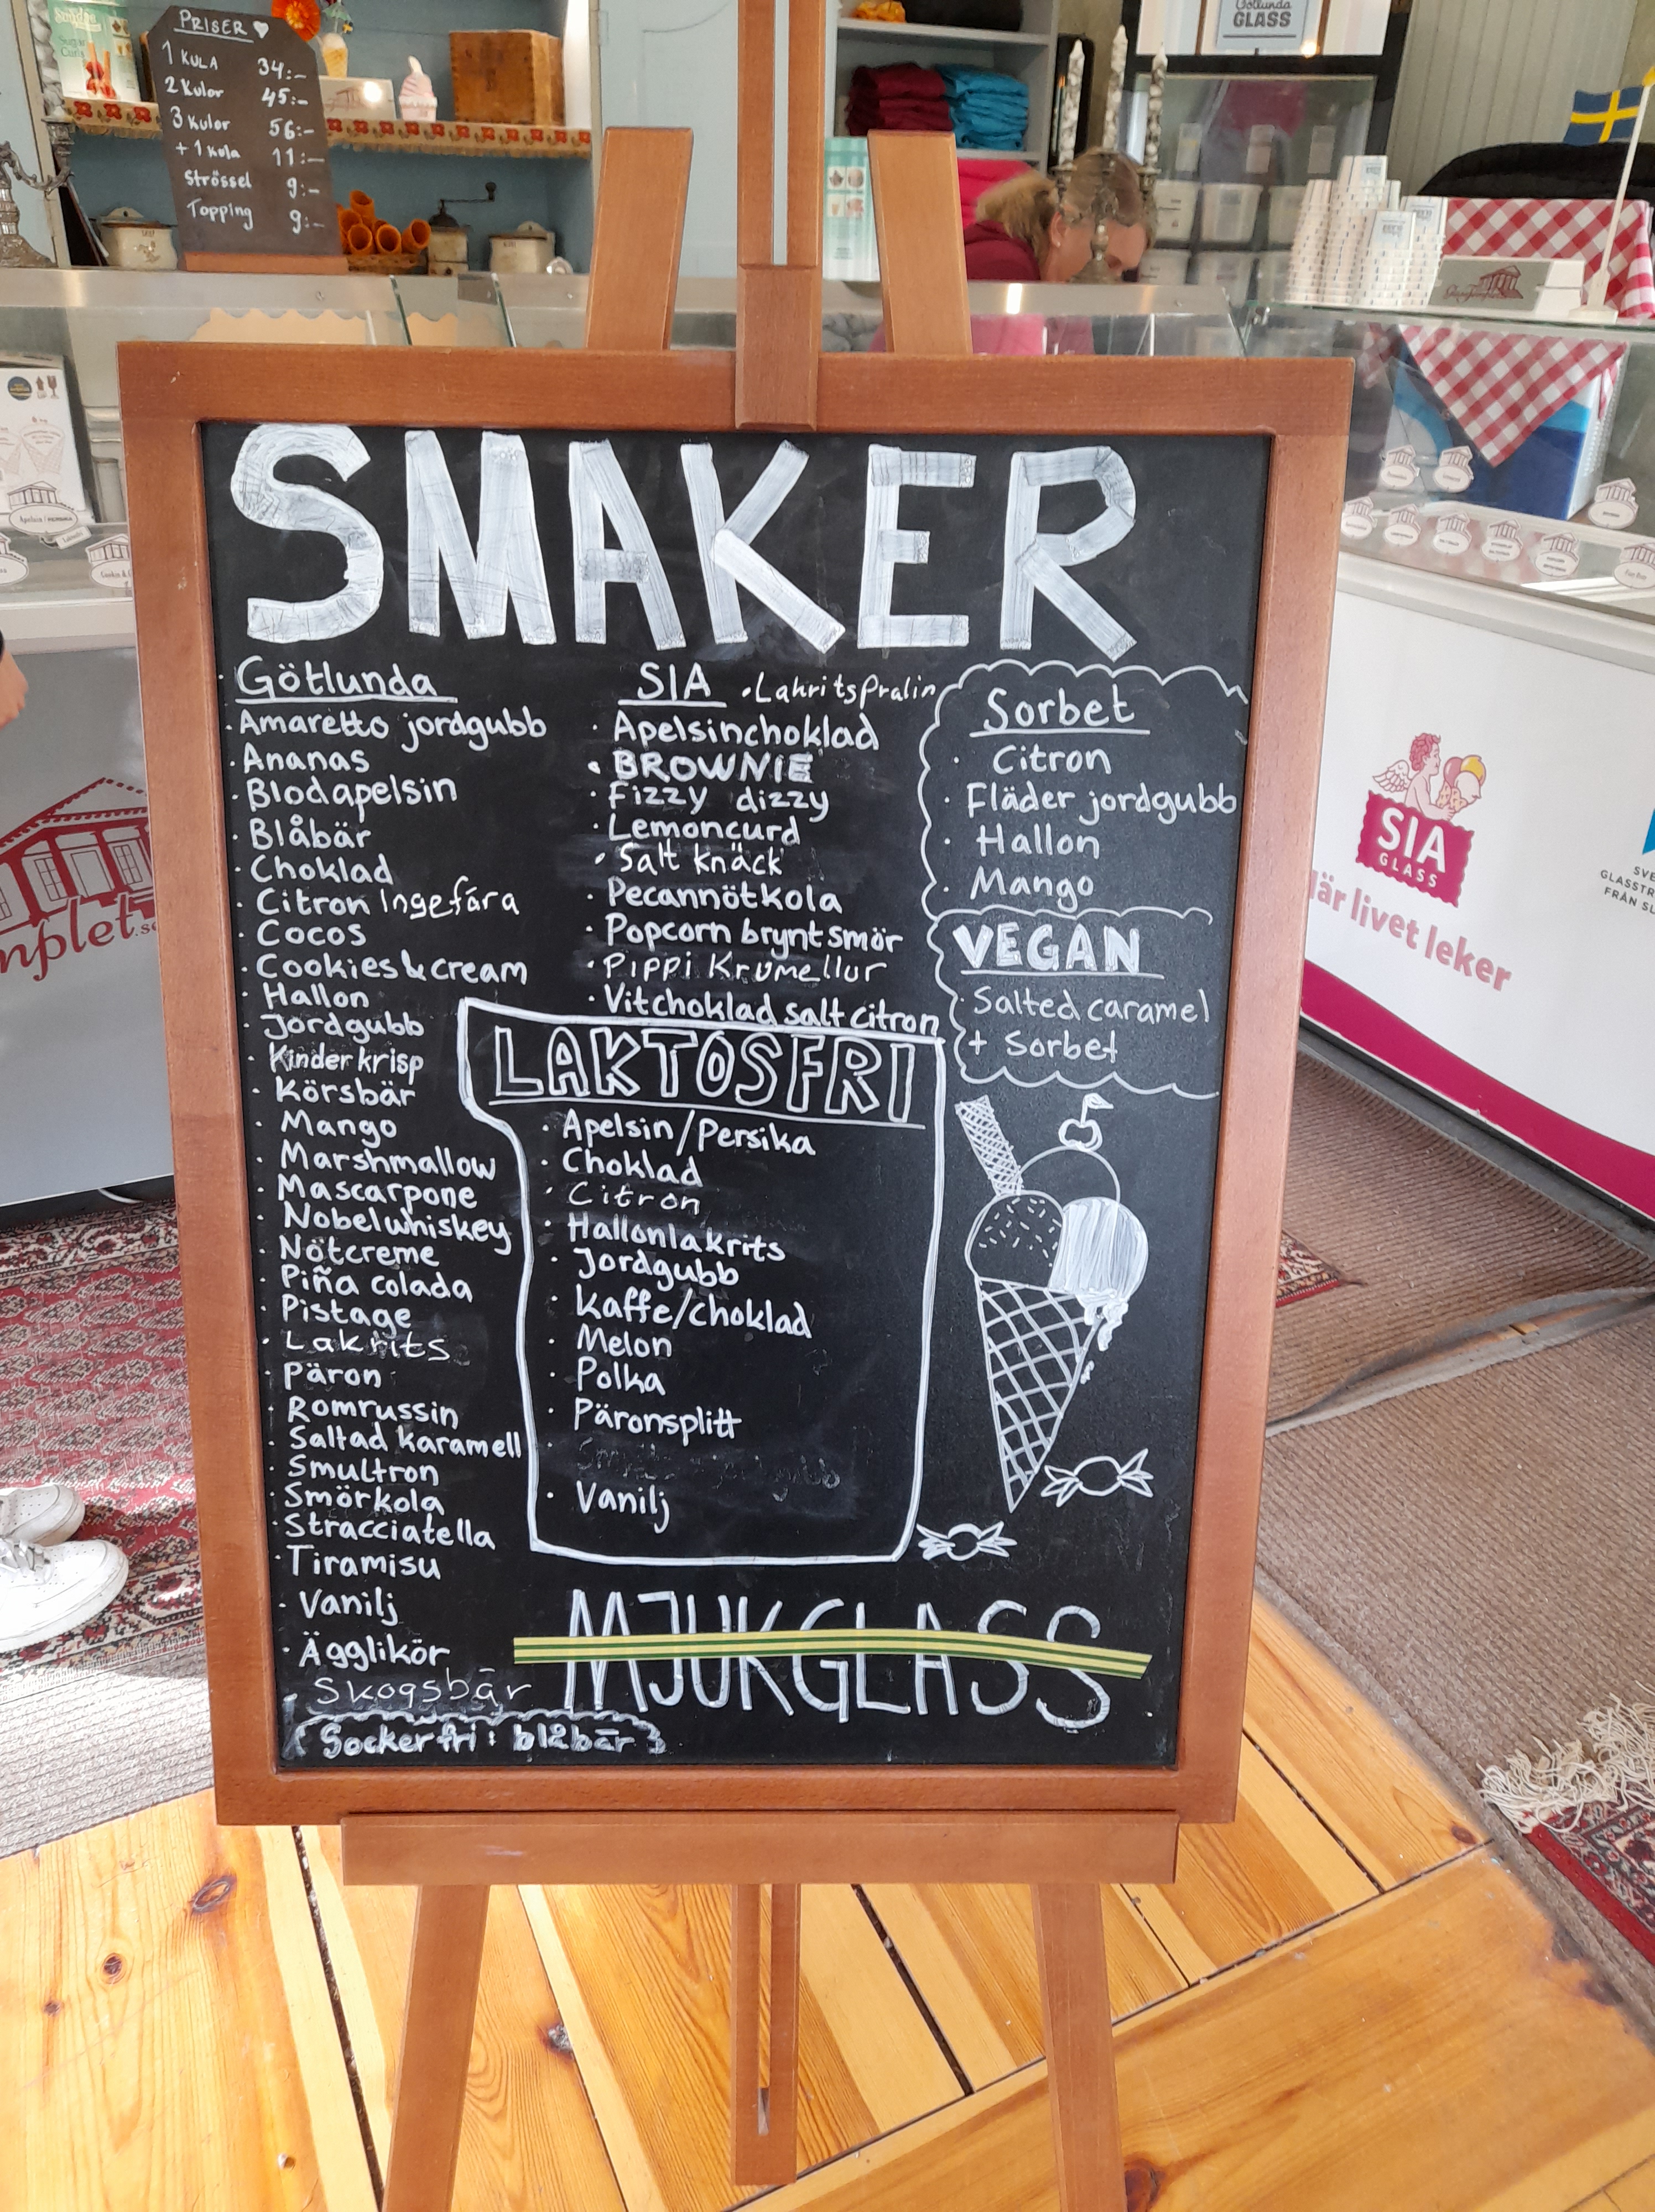 PRISER
1 KULA 34:-
2 Kulor 45:-
3 kulor 56:-
+ 1 kula 11:-
Strössel 9:-
Topping 9:-
Götlunda
GLASS
SMAKER
Götlunda
Amaretto jordgubb
Ananas
Blodapelsin
Blåbär
Choklad
Citron Ingefära
Cocos
Cookies & cream
Hallon
Jordgubb
Kinder krisp
Körsbär
Mango
Marshmallow
Mascarpone
Nobelwhiskey
Nötcreme
Piña colada
Pistage
Lakrits
Päron
Romrussin
Saltad karamell
Smultron
Smörkola
Stracciatella
Tiramisu
Vanilj
Äggliköŕ
Skogsbär
Sockerfri: blåbär
SIA
Lakritspralin
Apelsinchoklad
BROWNIE
Fizzy dizzy
Lemoncurd
Salt knäck
Pecannötkola
Popcorn brynt smör
Pippi Krumellur
Vitchoklad salt citron
LAKTOSFRI
Apelsin/Persika
Choklad
Citron
Hallonlakrits
Jordgubb
Kaffe/choklad
Melon
Polka
Päronsplitt
Vanilj
Sorbet
Citron
Fläder jordgubb
Hallon
Mango
VEGAN
Salted caramel
+ Sorbet
MJUKGLASS
SIA
GLASS
där livet leker
mplet.se